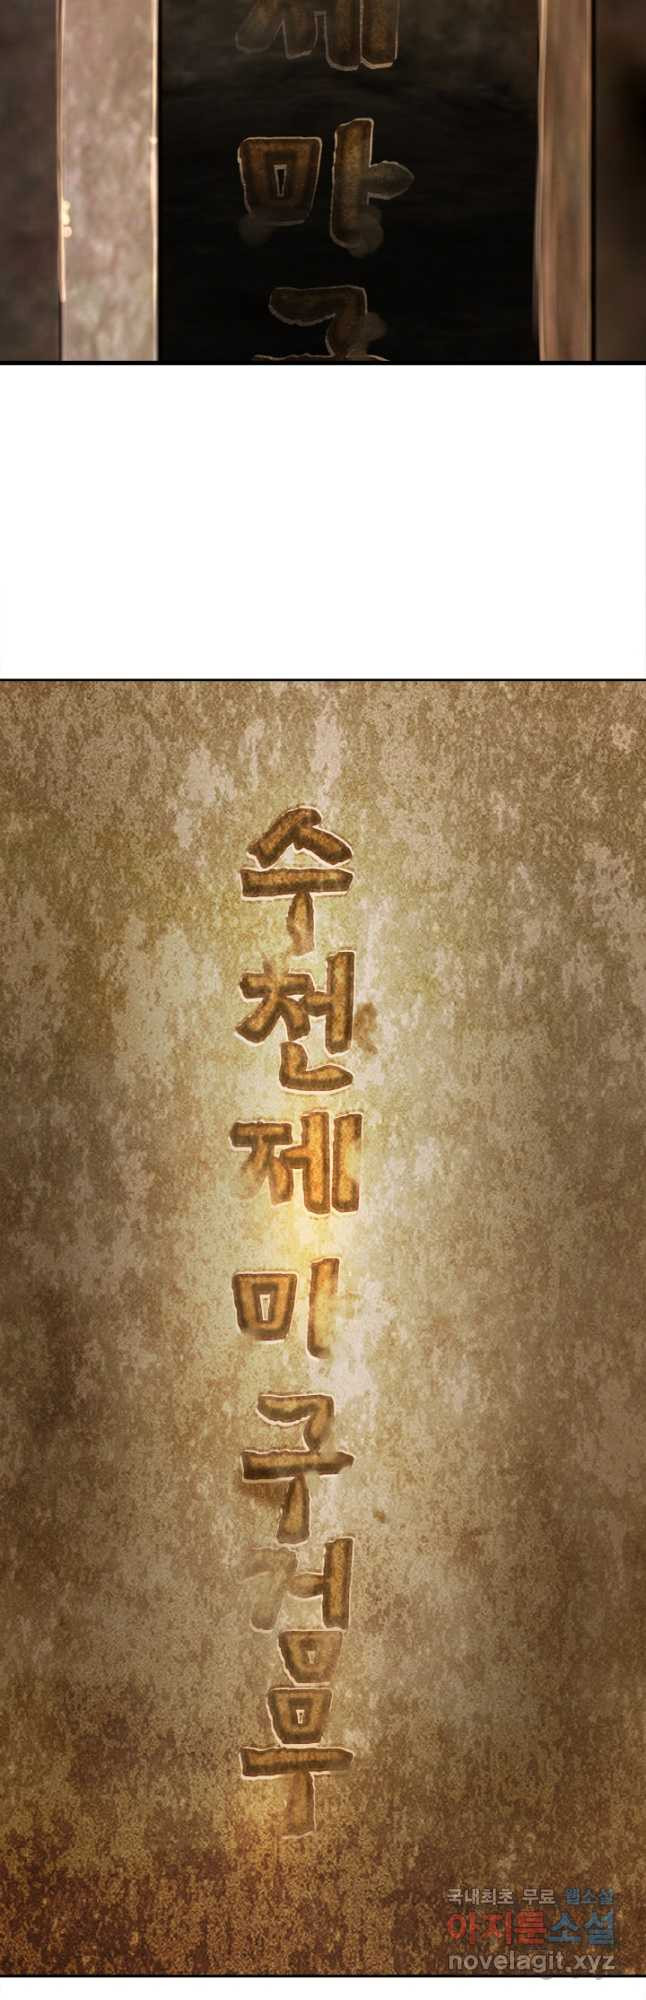 제마구
수천제미구검무
국내최초 무료 웹소설
아지툰소설
novelagit.xyz